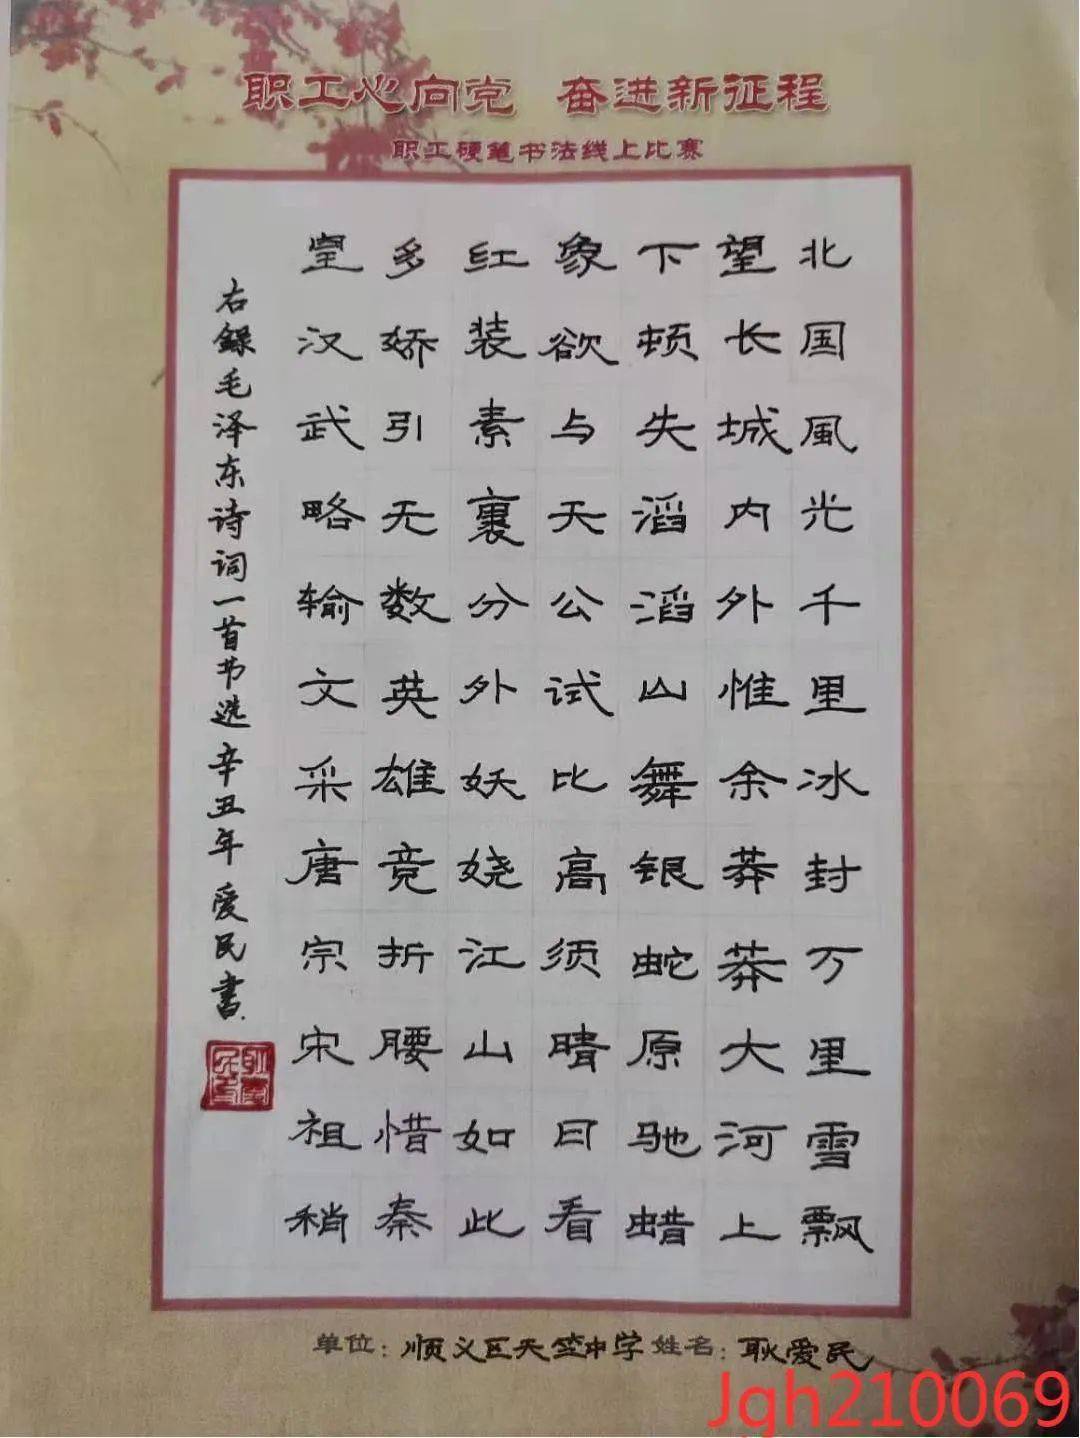 职工心向党 奋进新征程
职工硬笔书法线上比赛
北国風光千里冰封万里雪飘
望长城内外惟余莽莽大河上
下顿失滔滔山舞银蛇原驰蜡
象欲与天公试比高须晴日看
红装素裹分外妖娆江山如此
多娇引无数英雄竞折腰惜秦
皇汉武略输文采唐宗宋祖稍
右録毛泽东诗词一首节选辛丑年爱民書
单位：顺义区天竺中学 姓名：耿爱民
Jgh210069